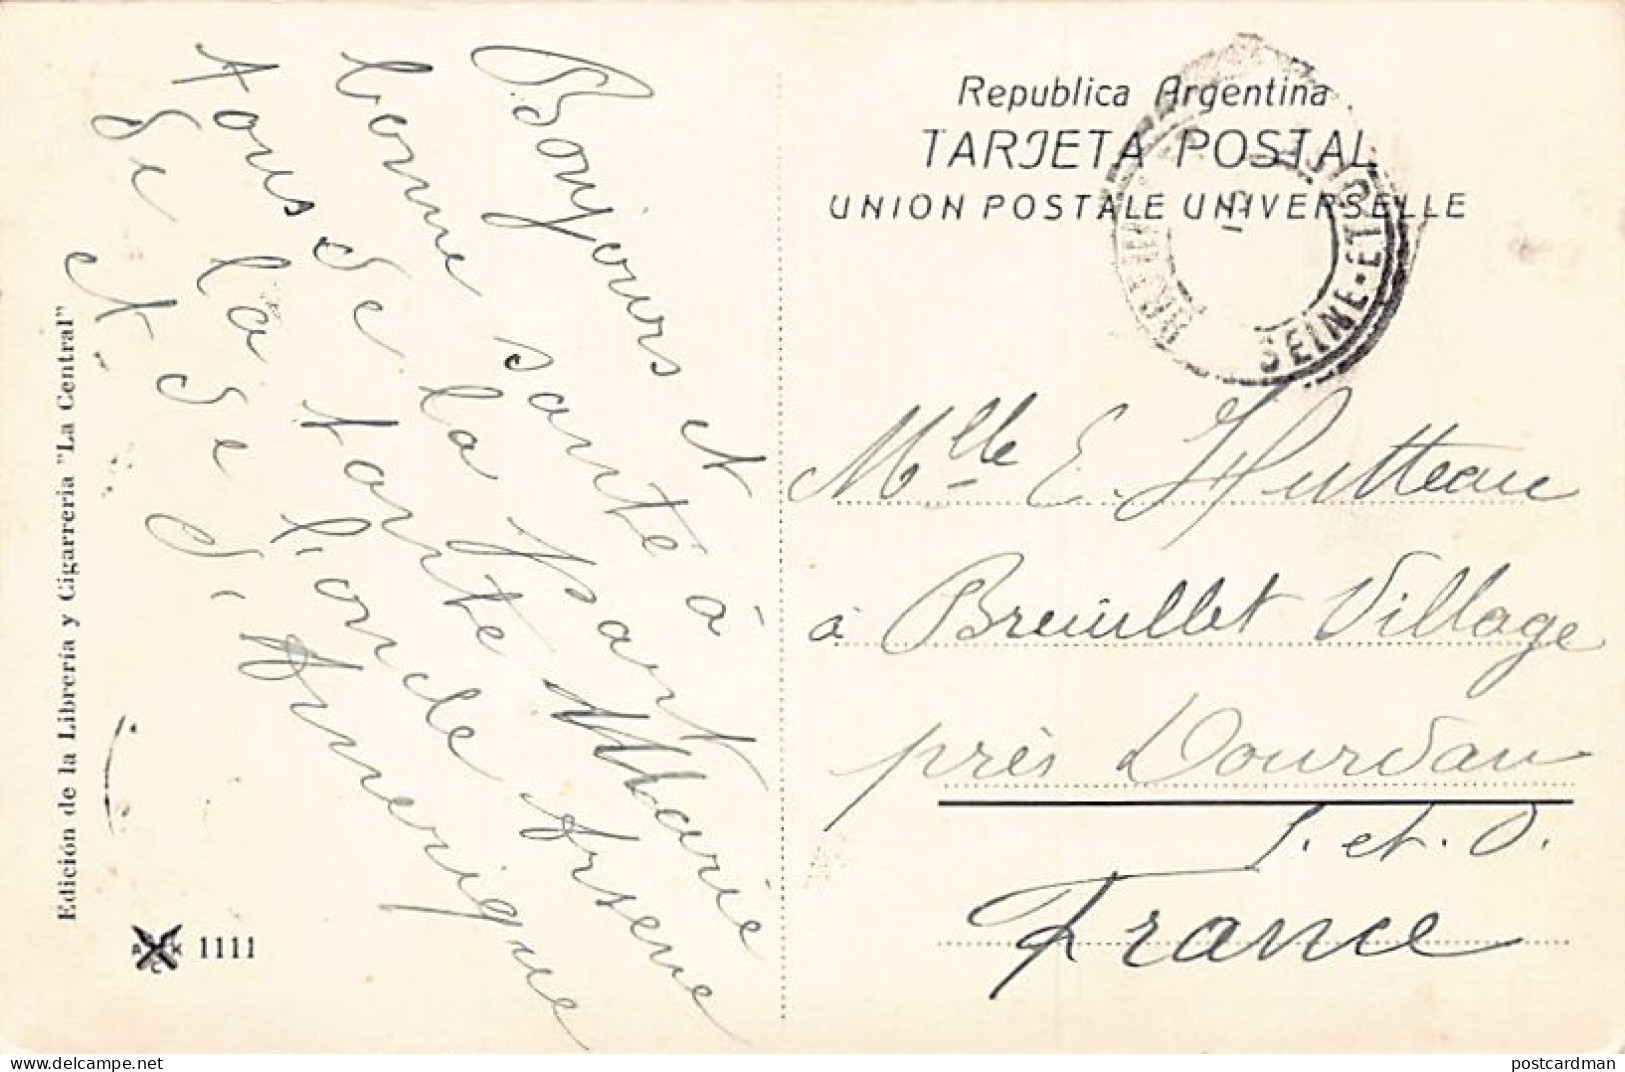 Bonjours et
bonne santé à
tous de la part
de la tante Marie
et de l'oncle Arsene
d'Amerique
Edición de la Librería y Cigarrería "La Central"
1111
Republica Argentina
TARJETA POSTAL
UNION POSTALE UNIVERSELLE
SEINE-ET-OISE
Mlle E. Hutteau
à Breuillet Village
près Dourdan
S. et. O.
France
www.delcampe.net
postcardman